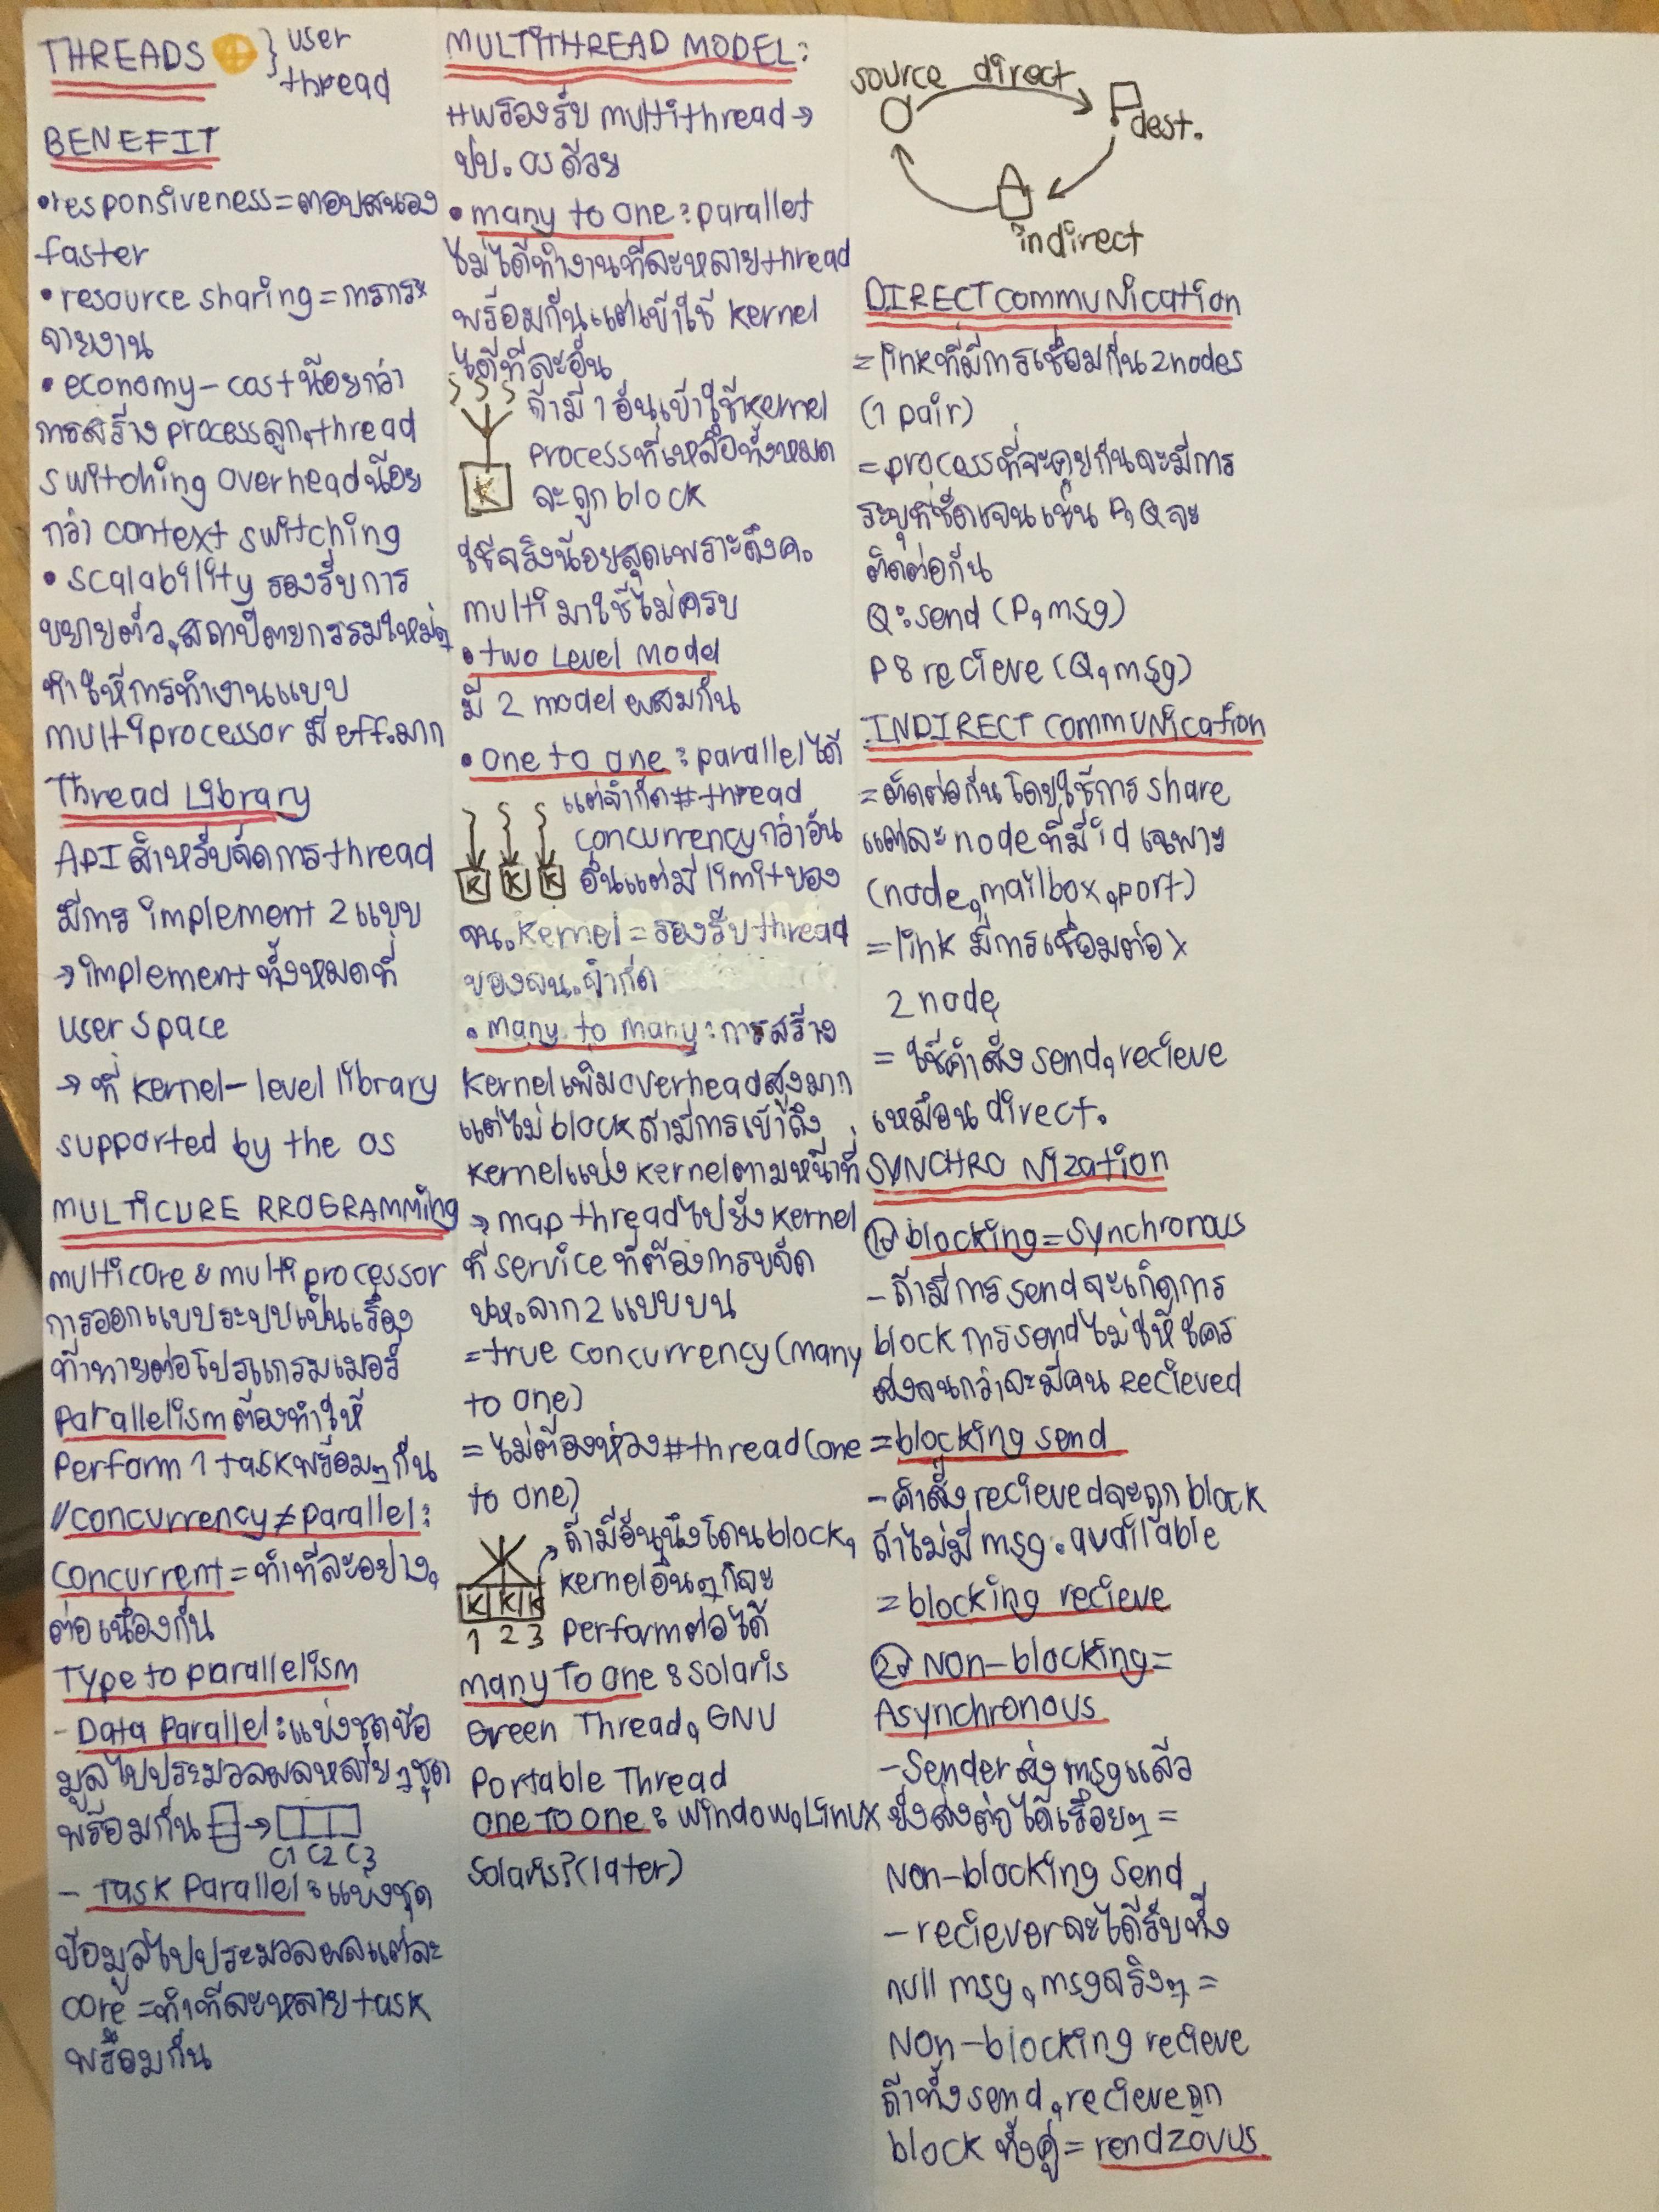 THREADS } user
thread
BENEFIT
•responsiveness=ตอบสนอง
faster
•resource sharing=การกระ
จายงาน
•economy-costน้อยกว่า
การสร้าง processลูก,thread
switching overheadน้อย
กว่า context switching
•scalability รองรับการ
ขยายตัว,สถาปัตยกรรมใหม่ๆ
ทำให้การทำงานแบบ
multiprocessor มี eff.มาก
Thread Library
API สำหรับจัดการ thread
มีการ implement 2 แบบ
→implement ทั้งหมดที่
user space
→ ที่ kernel-level library
supported by the OS
MULTICURE RROGRAMMing
multicore & multiprocessor
การออกแบบระบบเป็นเรื่อง
ท้าทายต่อโปรแกรมเมอร์
Parallelism ต้องทำให้
Perform 1 taskพร้อมๆกัน
//concurrency≠parallel:
concurrent=ทำทีละอย่าง,
ต่อเนื่องกัน
Type to parallelism
-Data Parallel:แบ่งชุดข้อ
มูลไปประมวลผลหลายๆชุด
พร้อมกัน →
C1 C2 C3
- Task Parallel:แบ่งชุด
ข้อมูลไปประมวลผลแต่ละ
core=ทำทีละหลาย task
พร้อมกัน
MULTITHREAD MODEL:
HWรองรับ multithread→
ปป. OSด้วย
•many to one:parallel
ไม่ได้ทำงานทีละหลาย thread
พร้อมกันแต่เข้าใช้ kernel
ได้ทีละอัน
ถ้ามี 1 อันเข้าใช้kernel
processที่เหลือทั้งหมด
K จะถูก block
ใช้จริงน้อยสุดเพราะดึงค.
multi มาใช้ไม่ครบ
•two Level Model
มี 2 model ผสมกัน
•one to one:parallelได้
แต่จำกัด#thread
concurrencyกว่าอัน
K K K อื่นแต่มี limitของ
จน.kernel=รองรับthread
ของจน.จำกัด
•many to many:การสร้าง
kernelเพิ่มoverheadสูงมาก
แต่ไม่ blockถ้ามีการเข้าถึง
kernelแบ่งkernelตามหน้าที่
→map threadไปยัง kernel
ที่ service ที่ต้องการขจัด
ปห.จาก2แบบบน
=true concurrency(many
to one)
=ไม่ต้องห่วง#thread(one
to one)
→ถ้ามีอันนึงโดนblock,
K K K kernelอื่นๆก็จะ
1 2 3 performต่อได้
many To one:solaris
Green Thread, GNU
Portable Thread
one To one:window,Linux
Solaris?(later)
source direct
dest.
indirect
DIRECT communication
=linkที่มีการเชื่อมกัน2nodes
(1 pair)
=processที่จะคุยกันจะมีการ
ระบุที่ชัดเจนเช่น P,Qจะ
ติดต่อกัน
Q:send (P,msg)
P:recieve(Q,msg)
INDIRECT communication
=ติดต่อกันโดยใช้การ share
แต่ละnodeที่มี id เฉพาะ
(node,mailbox,port)
=link มีการเชื่อมต่อ>
2 node
= ใช้คำสั่ง send,recieve
เหมือน direct.
SYNCHRO Nization
1. blocking=synchronous
-ถ้ามีการ sendจะเกิดการ
block การsendไม่ให้ใคร
ส่งจนกว่าจะมีคน recieved
=blocking send
-คำสั่ง recievedจะถูก block
ถ้าไม่มี msg.available
=blocking recieve
2. Non-blocking=
Asynchronous
-Senderส่งmsgแล้ว
ยังส่งต่อได้เรื่อยๆ =
Non-blocking send
-recieverจะได้รับทั้ง
null msg,msgจริงๆ =
Non-blocking recieve
ถ้าทั้งsend,recieveถูก
block ทั้งคู่=rendzovus